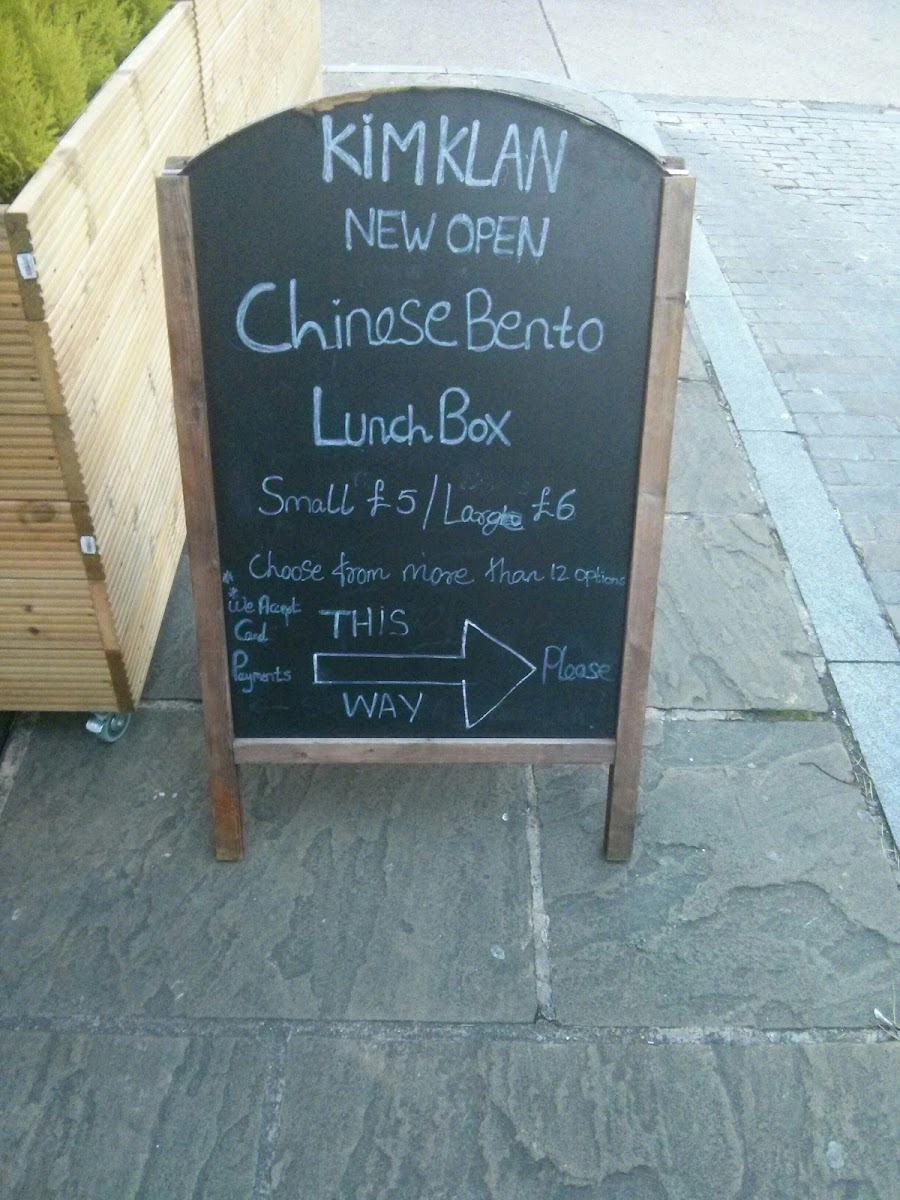 KiMKLAN
NEW OPEN
Chinese Bento
Lunch Box
Small £5/Large £6
* Choose from more than 12 options
* We Accept
Card
Payments
THiS
WAY
Please